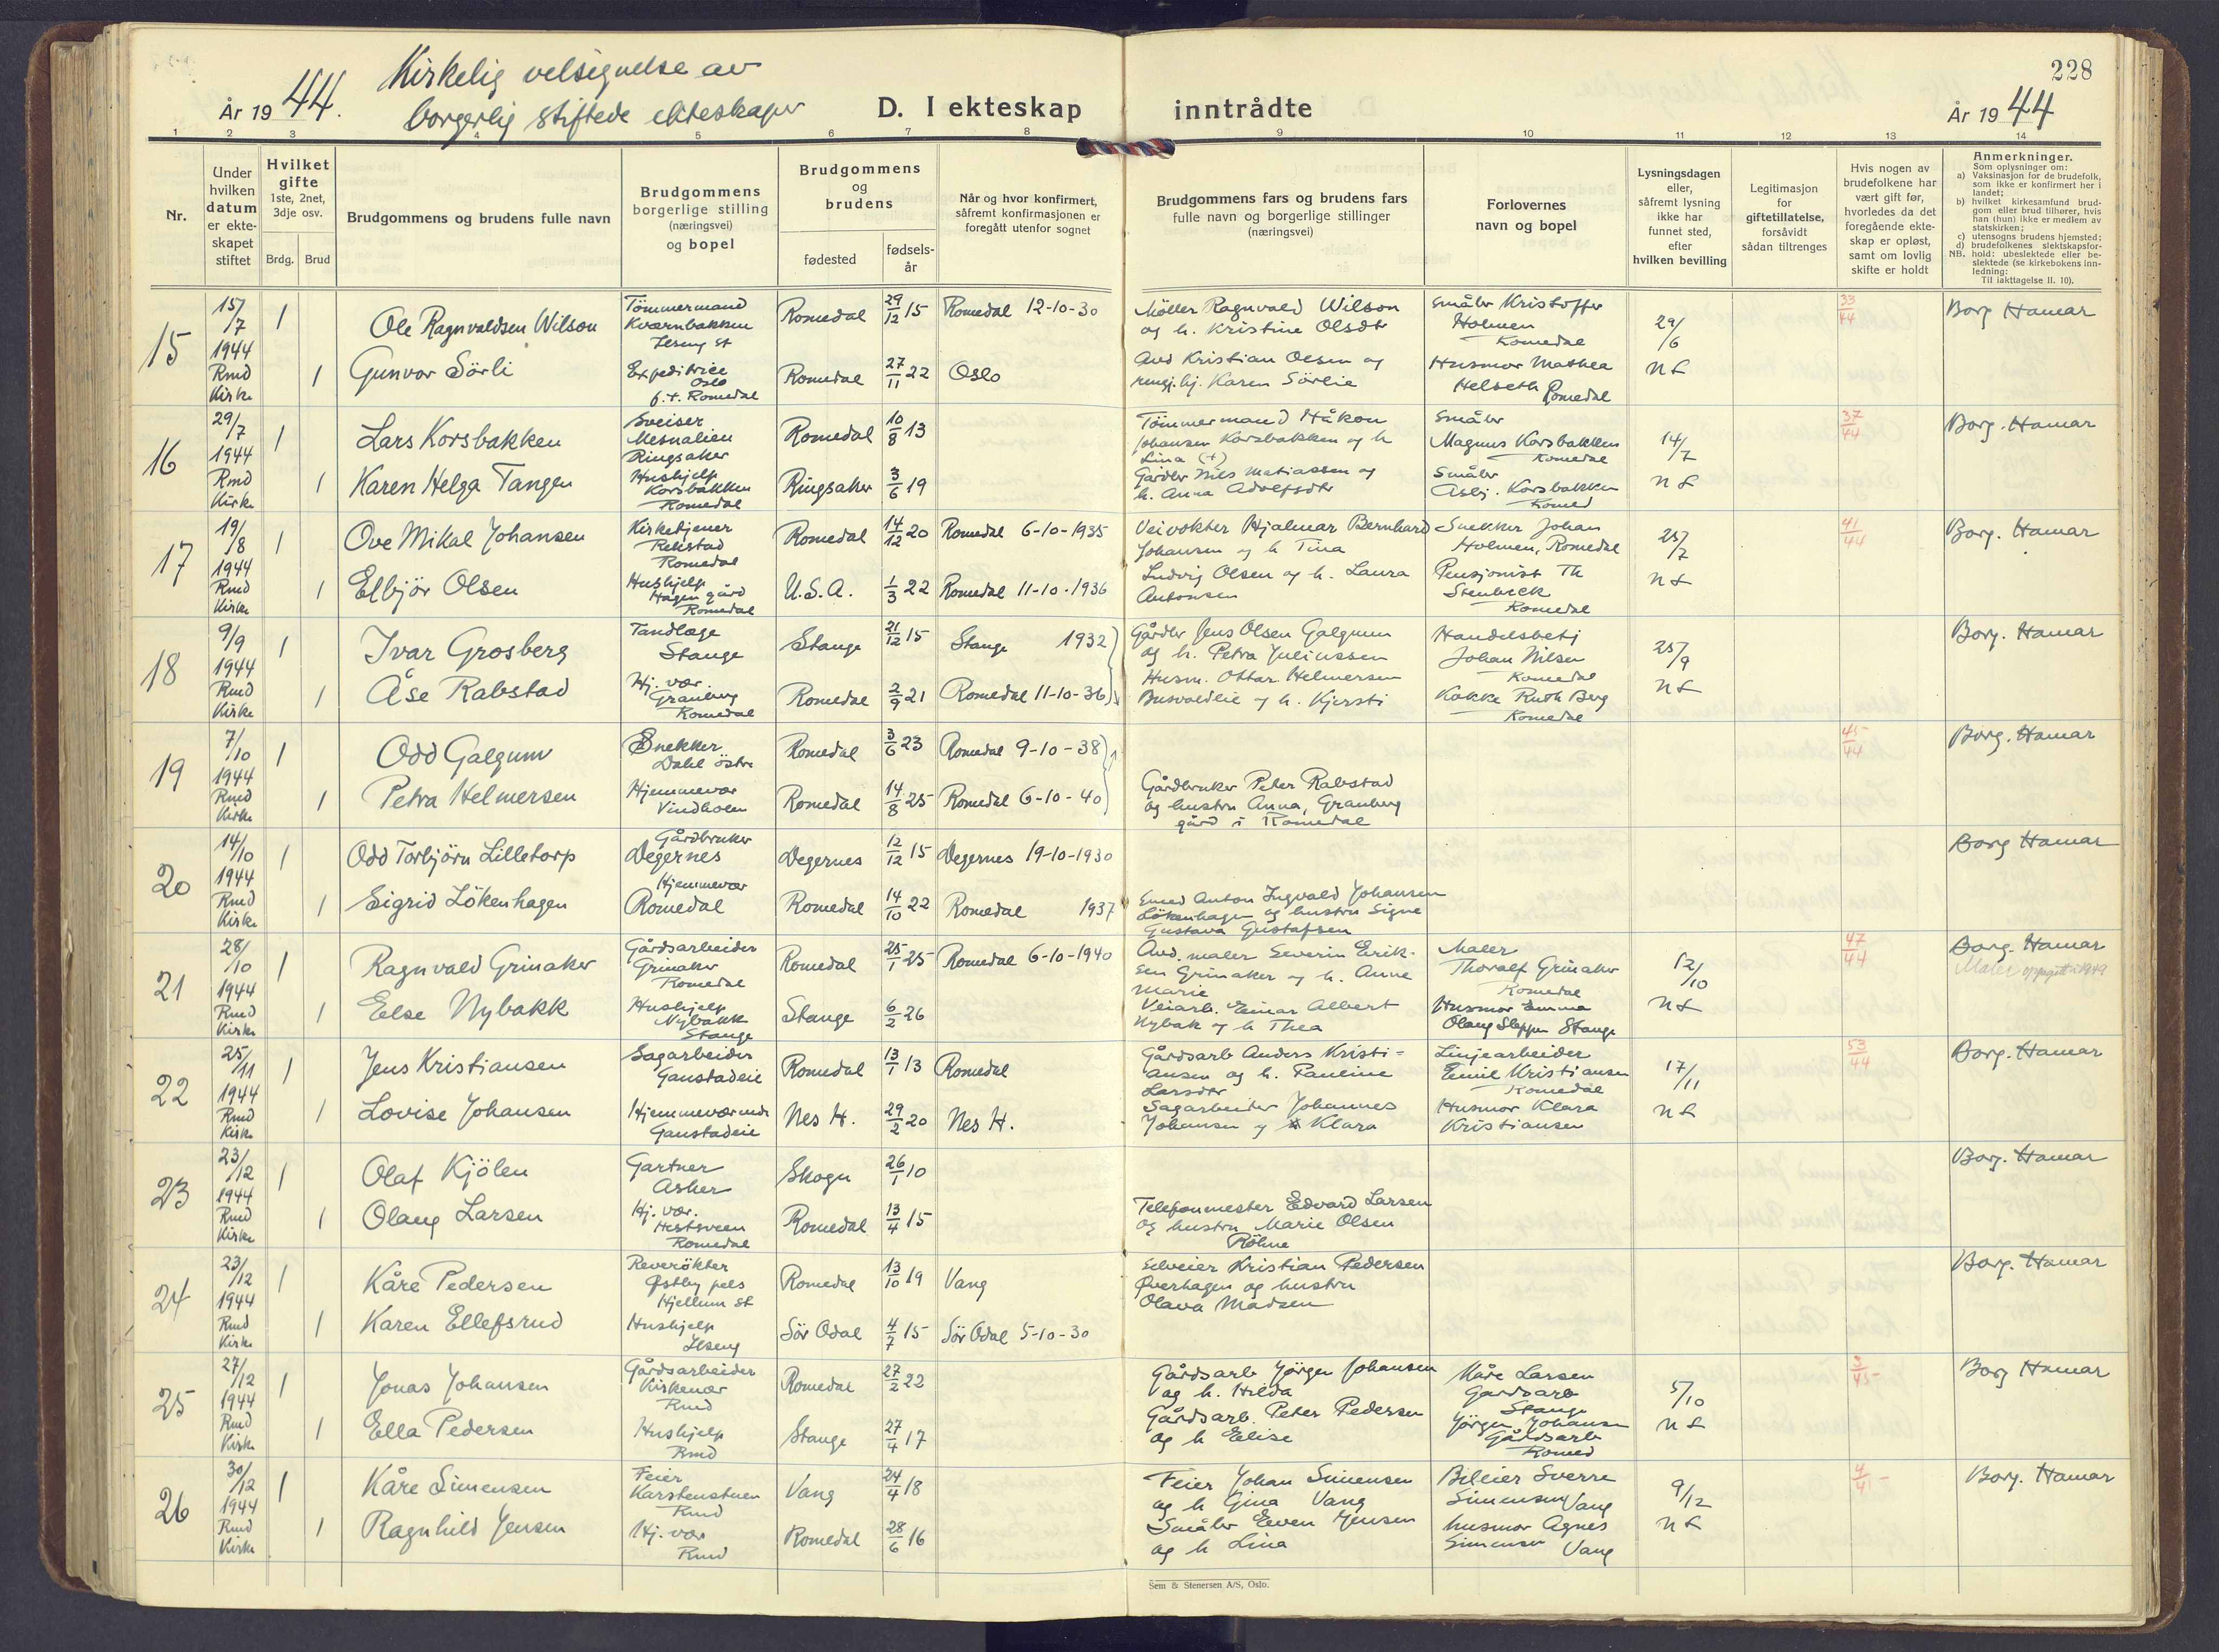 228
Kirkelig velsignelse av
År 19 44. borgerlig stiftede ekteskaper
D. I ekteskap inntrådte
År 19 44
1 2 3 4 5 6 7 8 9 10 11 12 13 14
Nr.
Under hvilken datum er ekteskapet stiftet
Hvilket gifte 1ste, 2net, 3dje osv.
Brdg. Brud
Brudgommens og brudens fulle navn
Brudgommens borgerlige stilling (næringsvei) og bopel
Brudgommens og brudens
fødested
fødselsår
Når og hvor konfirmert, såfremt konfirmasjonen er foregått utenfor sognet
Brudgommens fars og brudens fars fulle navn og borgerlige stillinger (næringsvei)
Forlovernes navn og bopel
Lysningsdagen eller, såfremt lysning ikke har funnet sted, efter hvilken bevilling
Legitimasjon for giftetillatelse, forsåvidt sådan tiltrenges
Hvis nogen av brudefolkene har vært gift før, hvorledes da det foregående ekteskap er opløst, samt om lovlig skifte er holdt
Anmerkninger.
Som oplysninger om:
a) Vaksinasjon for de brudefolk, som ikke er konfirmert her i landet;
b) hvilket kirkesamfund brudgom eller brud tilhører, hvis han (hun) ikke er medlem av statskirken;
c) utensogns brudens hjemsted;
d) brudefolkenes slektskapsforhold: ubeslektede eller beslektede (se kirkebokens innledning:
NB. Til iakttagelse II. 10).
15 15/7 1944 Rmd Kirke 1 Ole Ragnvaldsen Wilson Tömmermand Kværnbakken Ilseng st Romedal 29/12 15 Romedal 12-10-30 Möller Ragnvald Wilson og h. Kristine Olsdtr Småbr Kristoffer Holmen Romedal 29/6 33/44 Borg Hamar
1 Gunvor Sörli Expeditrice Oslo f.t. Romedal Romedal 27/11 22 Oslo Arb Kristian Olsen og rengj.hj. Karen Sörlie Husmor Mathea Helseth Romedal
16 29/7 1944 Rmd Kirke 1 Lars Korsbakken Sveiser Mesnalien Ringsaker Romedal 10/8 13 Tömmermand Håkon Johansen Korsbakken og h Lina (+) Småbr Magnus Korsbakken Romedal 14/7 37/44 Borg. Hamar
1 Karen Helga Tangen Hushjelp Korsbakken Romedal Ringsaker 3/6 19 Gårdbr Nils Matiassen og h. Anna Adolfsdtr Småbr Asbj. Korsbakken Romed
17 19/8 1944 Rmd Kirke 1 Ove Mikal Johansen Kirketjener Rekstad Romedal Romedal 14/12 20 Romedal 6-10-1935 Veivokter Hjalmar Bernhard Johansen og h Tina Snekker Johan Holmen, Romedal 25/7 41/44 Borg. Hamar
1 Elbjör Olsen Hushjelp Hagen gård Romedal U.S.A. 1/3 22 Romedal 11-10-1936 Ludvig Olsen og h. Laura Antonsen Pensjonist Th Stenbeck Romedal
18 9/9 1944 Rmd Kirke 1 Ivar Grosberg Tandlæge Stange Stange 21/12 15 Stange 1932 Gårdbr Jens Olsen Galgum og h. Petra Juliussen Handelsbetj Johan Nilsen Romedal 25/9 Borg. Hamar
1 Åse Rabstad Hj. vær. Granberg Romedal Romedal 2/9 21 Romedal 11-10-36 Husm. Ottar Helmersen Busvoldeie og h. Kjersti Kokke Ruth Berg Romedal
19 7/10 1944 Rmd Kirke 1 Odd Galgum Snekker Dahl östre Romedal 3/6 23 Romedal 9-10-38 45/44 Borg. Hamar
1 Petra Helmersen Hjemmevær Vindhoen Romedal 14/8 25 Romedal 6-10-40 Gårdbruker Peter Rabstad og hustru Anna, Granberg gård i Romedal
20 14/10 1944 Rmd Kirke 1 Odd Torbjörn Lilletorp Gårdbruker Degernes Degernes 12/12 15 Degernes 19-10-1930 Borg Hamar
1 Sigrid Lökenhagen Hjemmevær Romedal Romedal 14/10 22 Romedal 1937 Anton Ingvald Johansen Lökenhagen og hustru Signe Gustava Gustafsen
21 28/10 1944 Rmd Kirke 1 Ragnvald Grinaker Gårdsarbeider Grinaker Romedal Romedal 25/1 25 Romedal 6-10-1940 Arb. maler Severin Eriksen Grinaker og h. Anne Marie Maler Thoralf Grinaker Romedal 12/10 47/44 Borg. Hamar Maler oppgitt i 1949
1 Else Nybakk Hushjelp Nybakk Stange Stange 6/2 26 Veiarb. Einar Albert Nybak og h Thea Husmor Emma Olaug Stange
22 25/11 1944 Rmd Kirke 1 Jens Kristiansen Sagarbeider Gaustadeie Romedal 13/1 13 Romedal Gårdsarb Anders Kristiansen og h. Pauline Larsdtr Linjearbeider Emil Kristiansen Romedal 17/11 53/44 Borg. Hamar
1 Lovise Johansen Hjemmeværende Gaustadeie Nes H. 29/2 20 Nes H. Sagarbeider Johannes Johansen og Klara Husmor Klara Kristiansen
23 23/12 1944 Rmd Kirke 1 Olaf Kjölen Gartner Asker Skogn 26/1 10 Borg. Hamar
1 Olaug Larsen Hj. vær. Hestsveen Romedal Romedal 13/4 15 Telefonmester Edvard Larsen og hustru Marie Olsen Röhne
24 23/12 1944 Rmd Kirke 1 Kåre Pedersen Reverökter Østby pels Hjellum st Romedal 13/10 19 Vang Selveier Kristian Pedersen Øverhagen og hustru Olava Madsen Borg. Hamar
1 Karen Ellefsrud Hushjelp Ilseng Sör Odal 4/7 15 Sör Odal 5-10-30
25 27/12 1944 Rmd Kirke 1 Jonas Johansen Gårdsarbeider Kirkenær Rmd Romedal 27/2 22 Gårdsarb Jörgen Johansen og h. Hilda Kåre Larsen Gårdsarb Stange 5/10 3/45 Borg Hamar
1 Ella Pedersen Hushjelp Rmd Stange 27/4 17 Gårdsarb. Peter Pedersen og h Elise Jörgen Johansen Gårdsarb Romed
26 30/12 1944 Rmd Kirke 1 Kåre Simensen Feier Karstenstuen Rmd Vang 24/4 18 Feier Johan Simensen og h Gina Vang Bileier Sverre Simensen Vang 9/12 Borg. Hamar
1 Ragnhild Jensen Hj. vær Rmd Romedal 28/6 16 Småbr Even Jensen og h Lina husmor Agnes Simensen Vang
Sem & Stenersen A/S, Oslo.